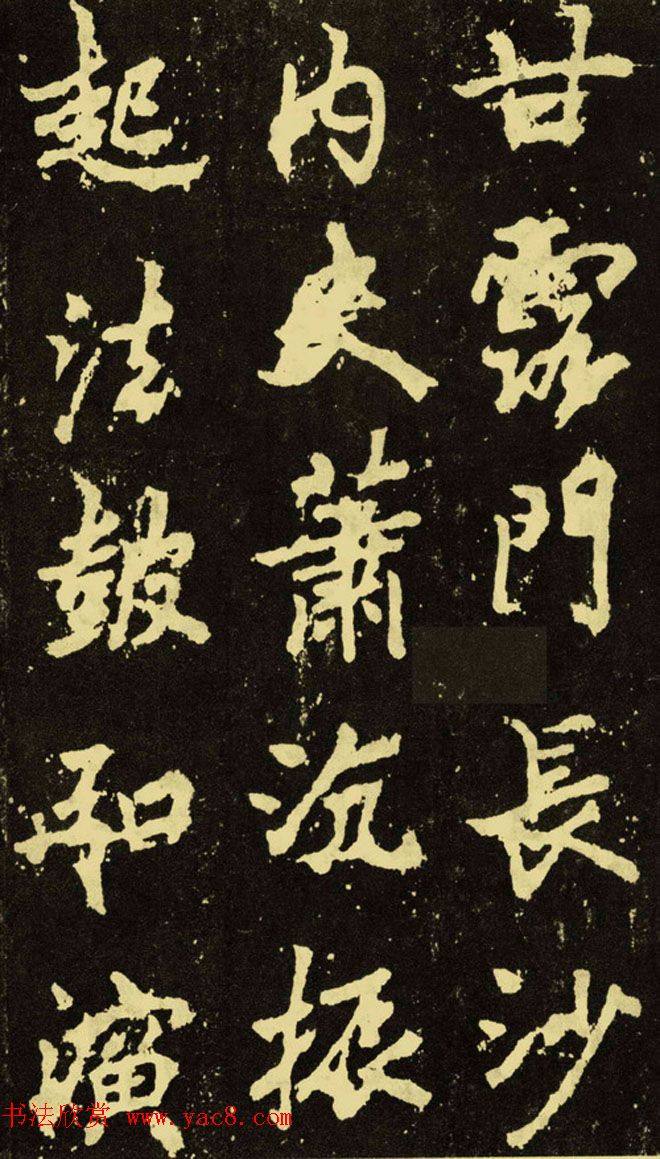 甘露門長沙
内史蕭沆振
起法皷和演
书法欣赏 www.yac8.com